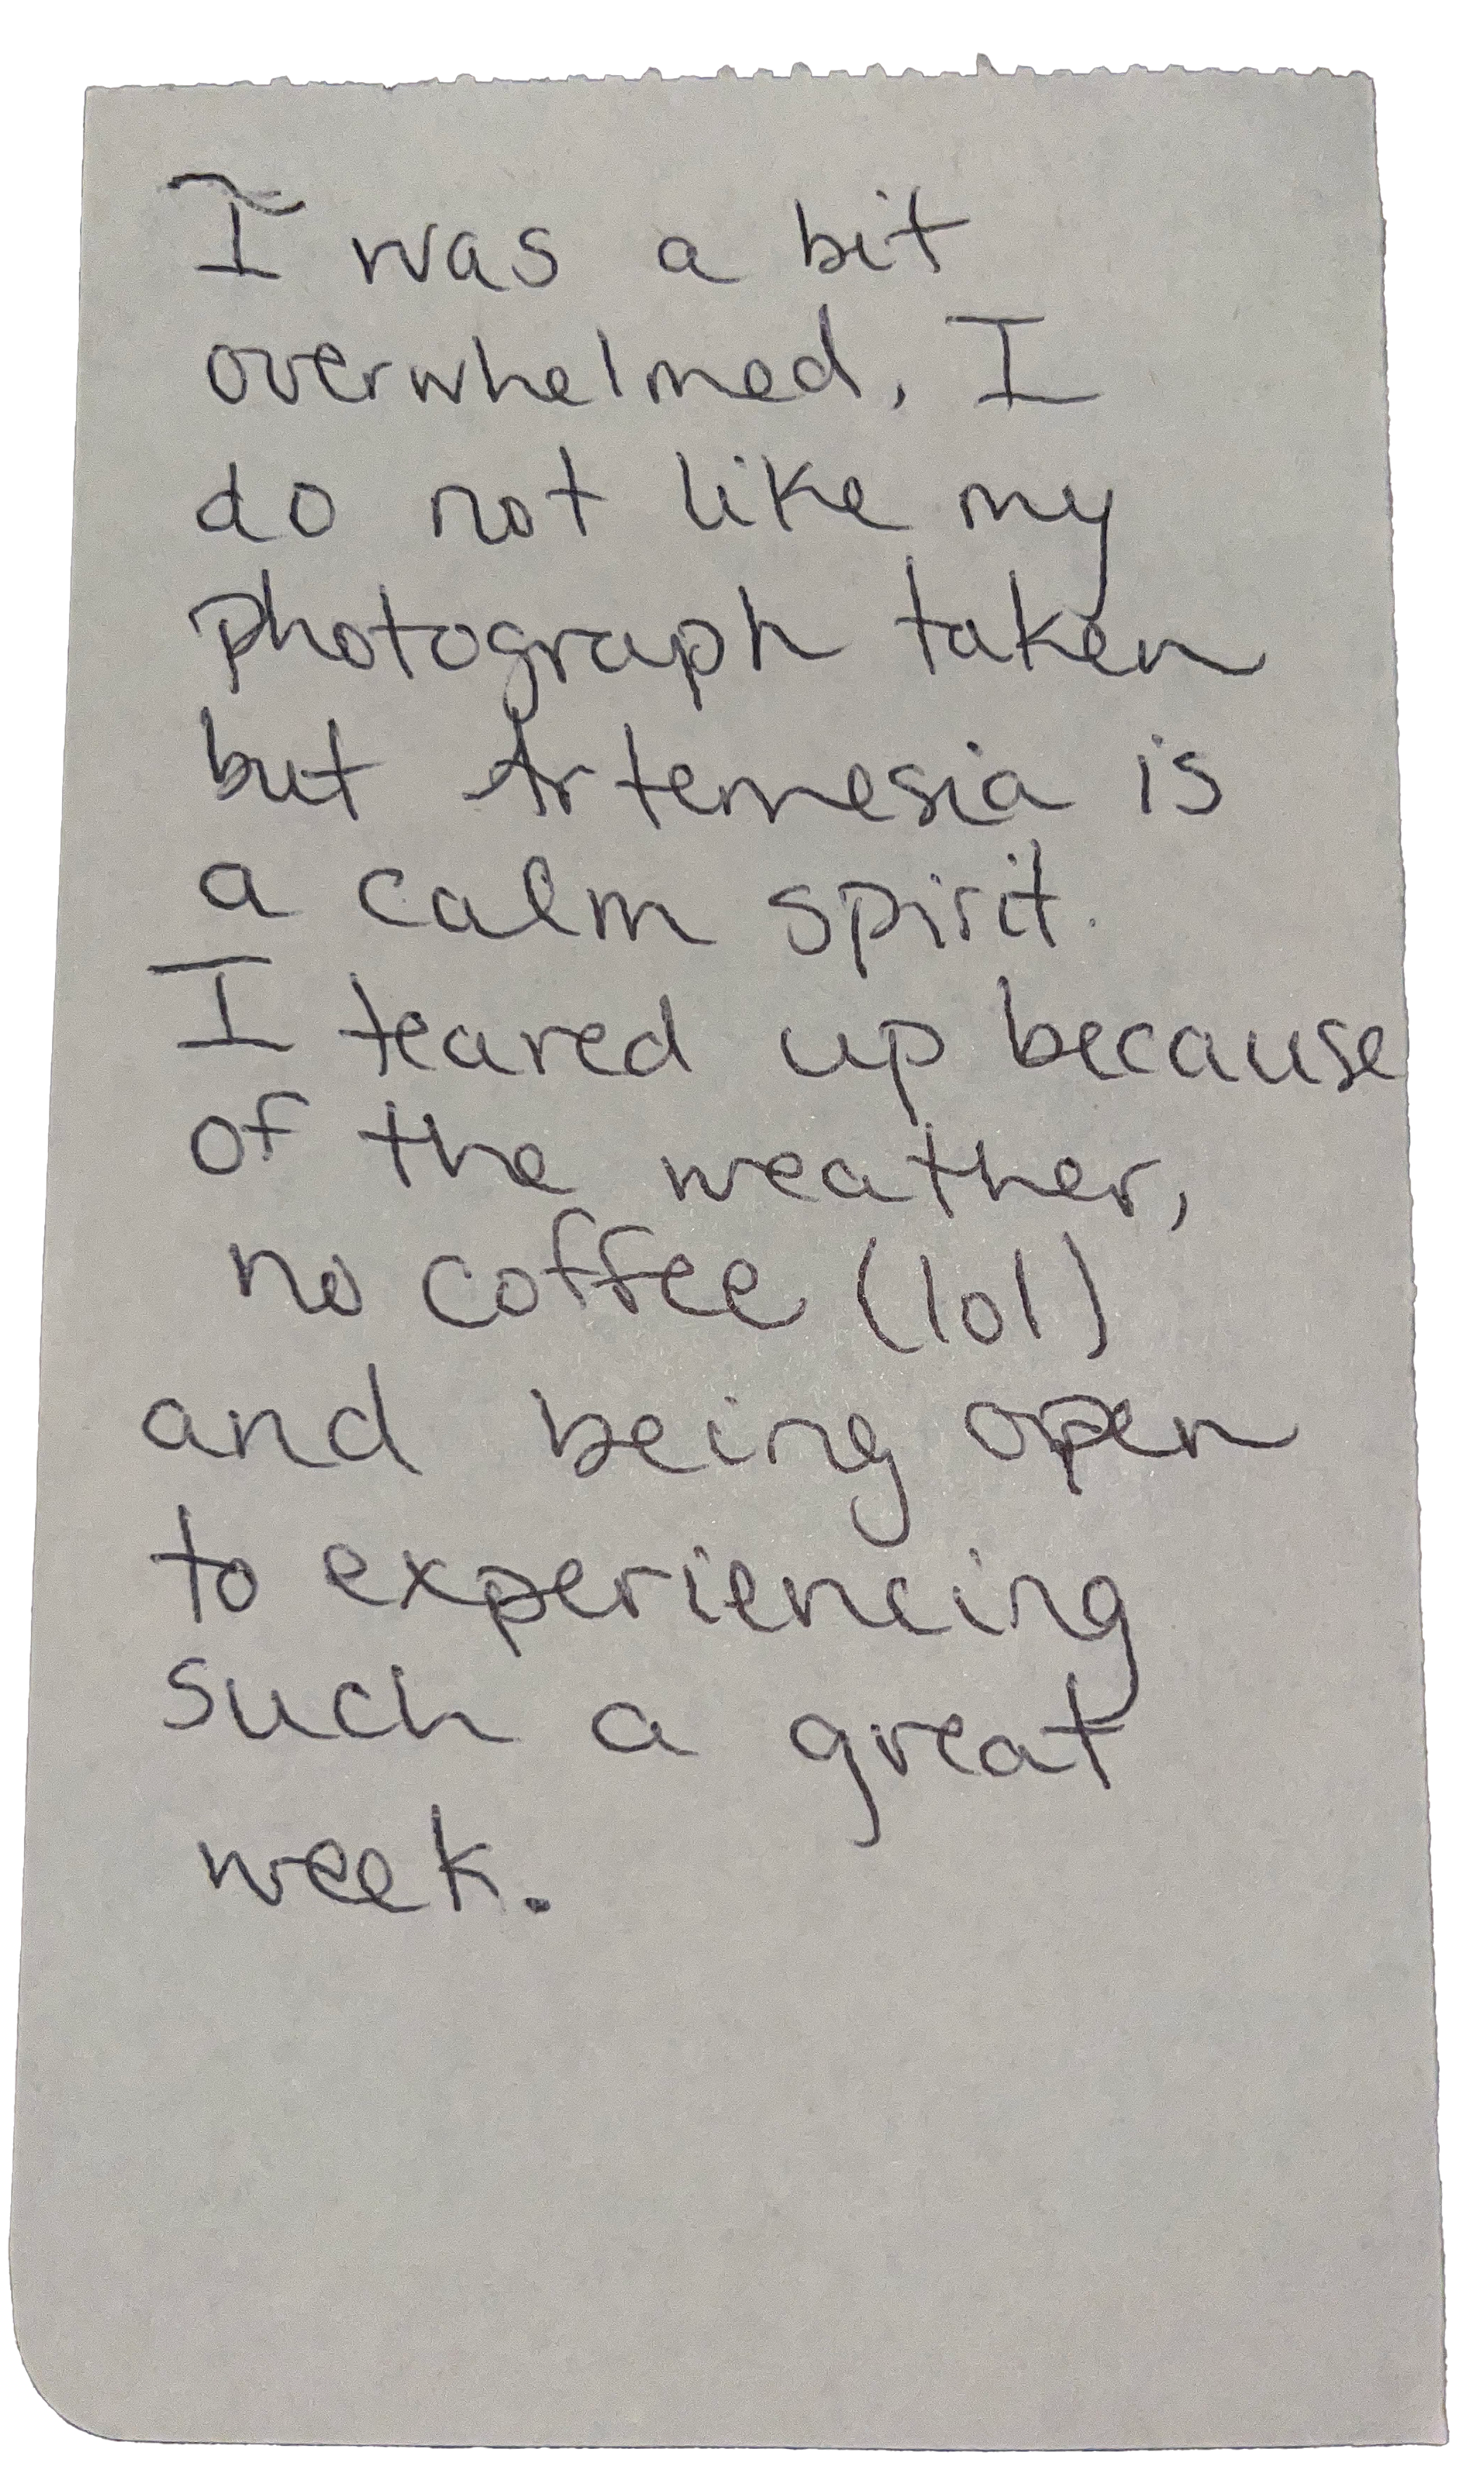 I was a bit
overwhelmed. I
do not like my
photograph taken
but Artemesia is
a calm spirit.
I teared up because
of the weather,
no coffee (lol)
and being open
to experiencing
such a great
week.